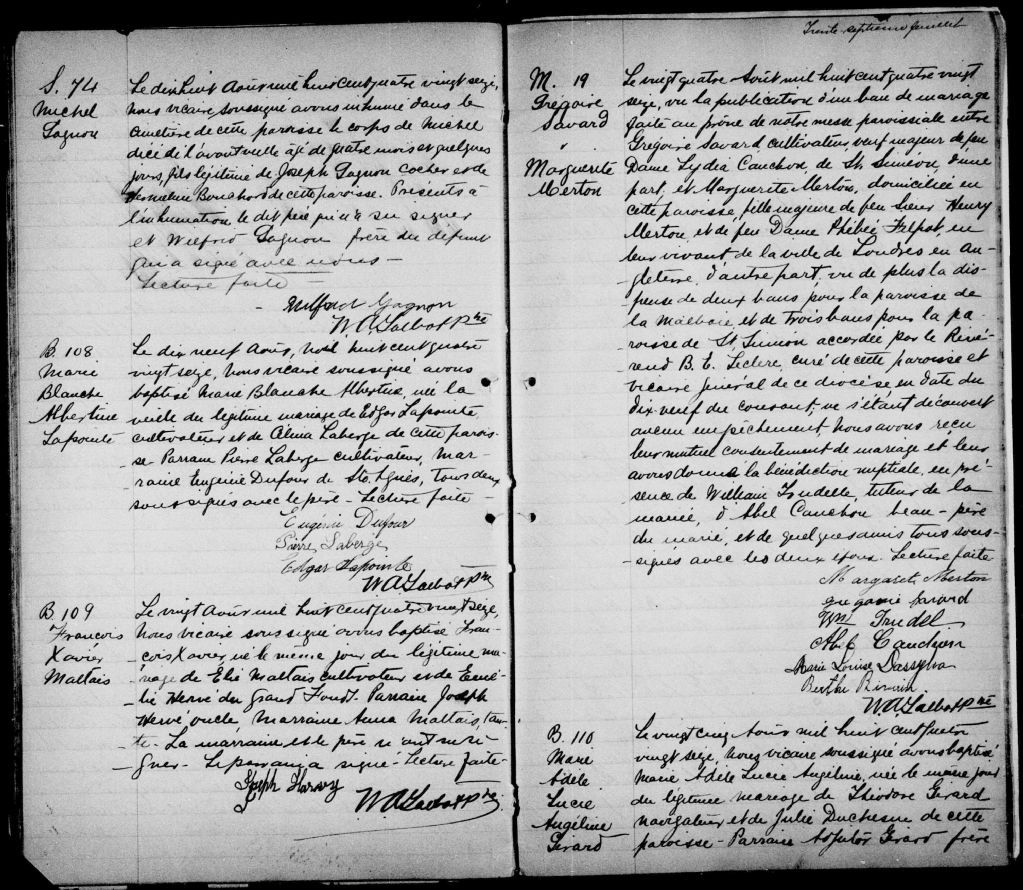 S. 74
Michel
Gagnon
Le dix huit Août mil huit cent quatre vingt seize,
Nous vicaire soussigné avons inhumé dans le
cimetière de cette paroisse le corps de Michel
décédé l'avant veille âgé de quatre mois et quelques
jours, fils légitime de Joseph Gagnon cocher et de
Bouchard de cette paroisse. Présents à
l'inhumation le dit père qui n'a su signer
et Wilfrid Gagnon frère du défunt
qui a signé avec nous -
- Lecture faite -
Wilfrid Gagnon
W. A. Talbot Ptre
B. 108
Marie
Blanche
Albertine
Lapointe
Le dix neuf Août, mil huit cent quatre
vingt seize, Nous vicaire soussigné avons
baptisé Marie Blanche Albertine, née la
veille du légitime mariage de Edgar Lapointe
cultivateur et de Célina Laberge de cette parois-
se Parrain Pierre Laberge cultivateur, Mar-
raine Eugénie Dufour de Ste Agnès, tous deux
soussignés avec le père - Lecture faite -
Eugénie Dufour
Pierre Laberge
Edgar Lapointe
W. A. Talbot Ptre
B. 109
Francois
Xavier
Maltais
Le vingt Août mil huit cent quatre vingt seize,
Nous vicaire soussigné avons baptisé Fran-
cois Xavier, né le même jour du légitime ma-
riage de Elie Maltais cultivateur et de Emé-
lie Hervé du Grand Fond. Parrain Joseph
Hervé oncle Marraine Anna Maltais, tan-
te - La marraine et le père n'ont su si-
gner - Le parrain a signé - Lecture faite -
Joseph Harvy
W. A. Talbot Ptre
Trente septième feuillet
M. 19
Grégoire
Savard
&
Marguerite
Merton
Le vingt quatre Août mil huit cent quatre vingt
seize, vu la publication d'un ban de mariage
faite au prône de notre messe paroissiale entre
Grégoire Savard cultivateur, veuf majeur de feu
Dame Lydia Cauchon, de St Siméon, d'une
part, et Marguerite Merton, domiciliée en
cette paroisse, fille majeure de feu Sieur Henry
Merton, et de feu Dame Phébée, en
leur vivant de la ville de Londres en An-
gleterre, d'autre part, vu de plus la dis-
pense de deux bans pour la paroisse de
la Malbaie, et de trois bans pour la pa-
roisse de St Siméon accordée par le Révé-
rend B. E. Leclerc, curé de cette paroisse et
vicaire général de ce diocèse en date du
dix neuf du courant, ne s'étant découvert
aucun empêchement, Nous avons reçu
leur mutuel consentement de mariage et leur
avons donné la bénédiction nuptiale, en pré-
sence de William Trudelle, tuteur de la
mariée, d'Abel Cauchon beau-père
du marié, et de quelques amis tous sous-
signés avec les deux époux. Lecture faite
Margaret Merton
gregoire savard
Wm Trudel
Abel Cauchon
Marie Louise Dassylva
Berthe
W. A. Talbot Ptre
B. 110
Marie
Adèle
Lucie
Angéline
Girard
Le vingt cinq Août mil huit cent quatre
vingt seize, Nous vicaire soussigné avons baptisé
Marie Adèle Lucie Angéline, née le même jour
du légitime mariage de Théodore Girard
navigateur et de Julie Duchesne de cette
paroisse - Parrain Adjutor Girard frère